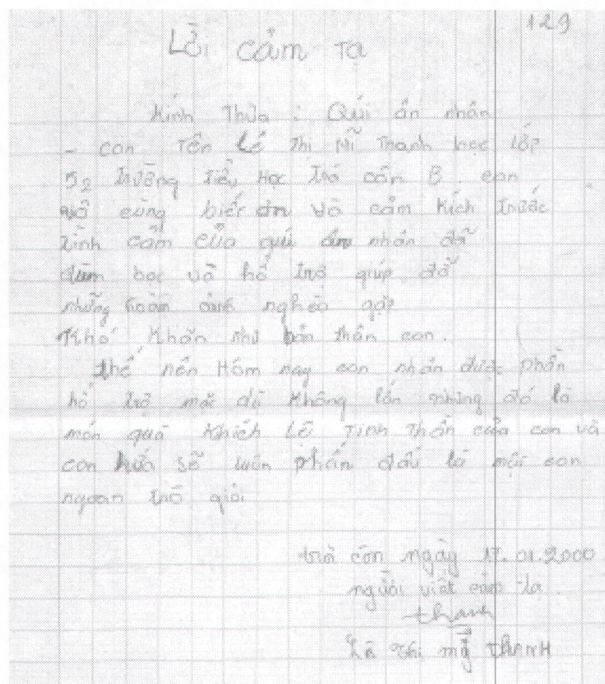 129
Lời cảm tạ
Kính Thưa : Quí ân nhân
- con Tên Lê Thị Mĩ Thanh học lớp
52 Trường Tiểu Học Trà côn B. con
vô cùng biết ơn và cảm kích Trước
Tình cảm của quí ân nhân đã
đùm bọc và hổ trợ giúp đở
những hoàn cảnh nghèo gặp
Khó Khăn như bản thân con.
thế nên Hôm nay con nhận được phần
hổ trợ mặc dù không lớn nhưng đó là
món quà Khích Lệ Tinh Thần của con và
con hứa sẽ luôn phấn đấu là một con
ngoan trò giỏi
trà côn ngày 17.01.2000
người viết cảm tạ.
thanh
Lê Thị mỹ THANH